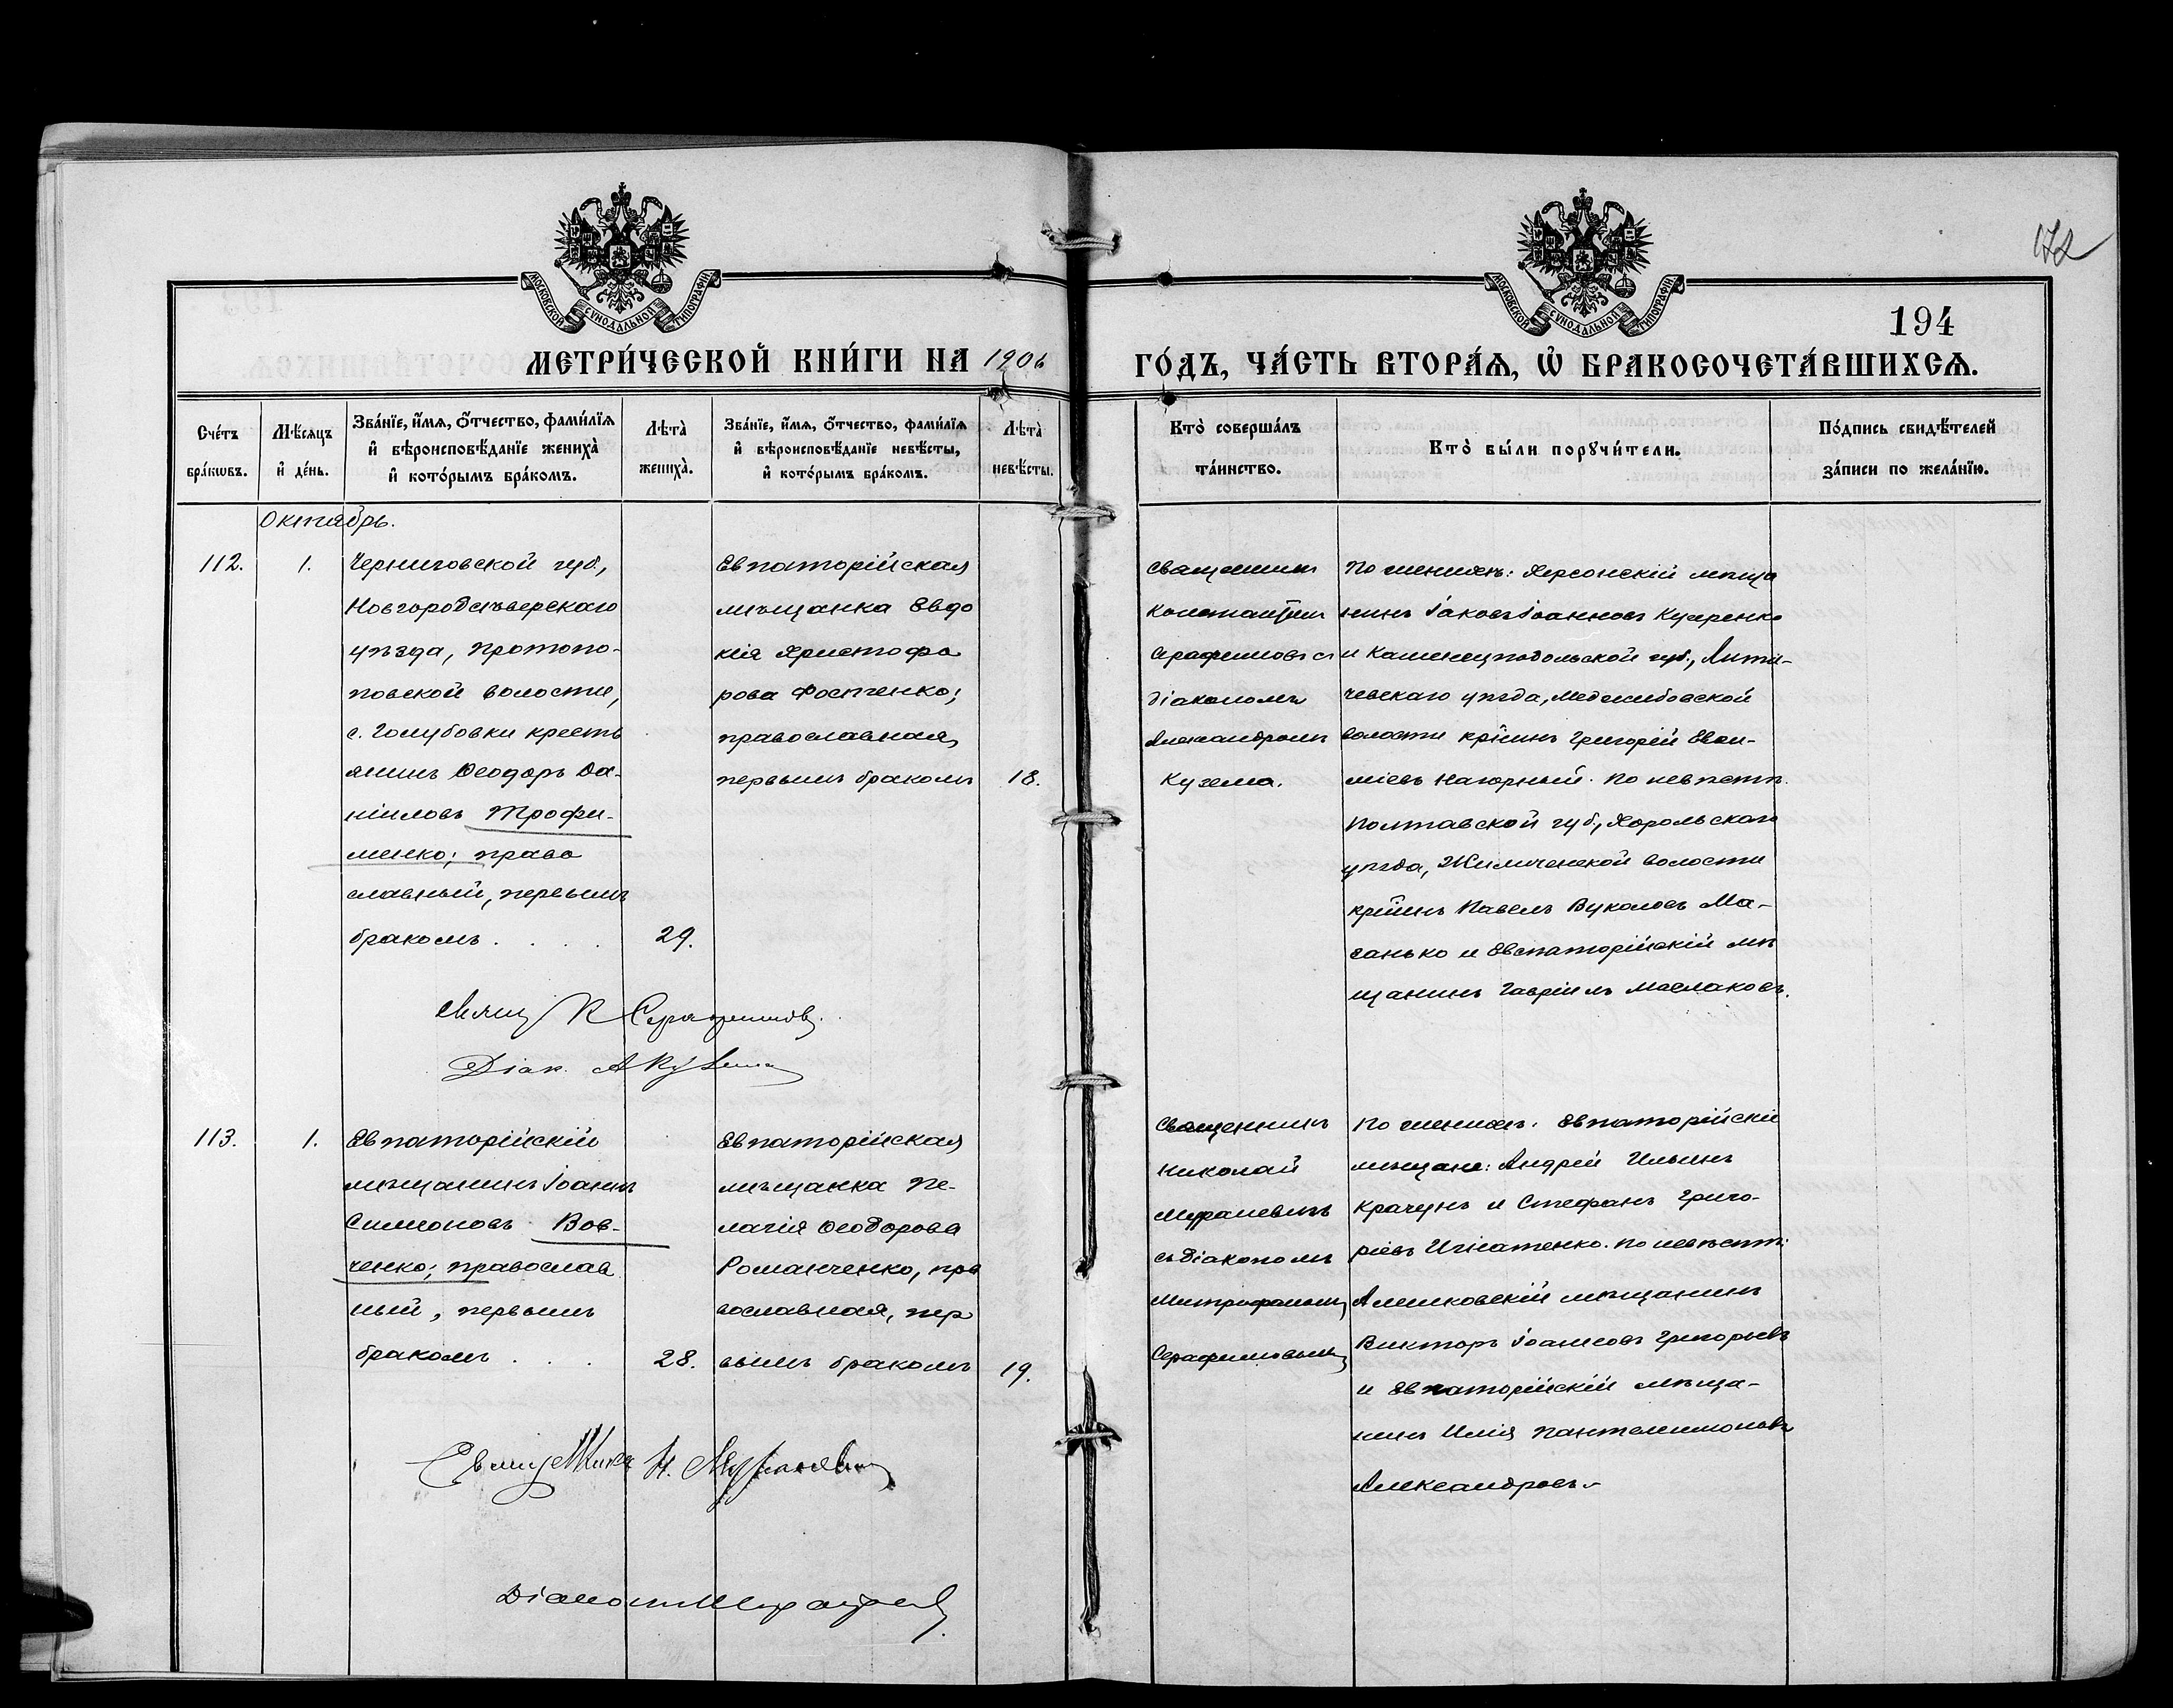 172
МОСКОВСКОЙ СѴНОДАЛЬНОЙ ТИПОГРАФІИ
МОСКОВСКОЙ СѴНОДАЛЬНОЙ ТИПОГРАФІИ
194
МЕТРИ́ЧЕСКОЙ КНИ́ГИ НА 1906 ГО́ДЪ, ЧА́СТЬ ВТОРА́Ѧ, Ѽ БРАКОСОЧЕТА́ВШИХСѦ.
Сче́тъ бра́кѡвъ.
Мѣ́сѧцъ и҆ де́нь.
Зва́нїе, и҆́мѧ, ѻ҆́тчество, фами́лїѧ
и҆ вѣроисповѣ́данїе жениха̀
и҆ кото́рымъ бра́комъ.
Лѣта̀ жениха̀.
Зва́нїе, и҆́мѧ, ѻ҆́тчество, фами́лїѧ
и҆ вѣроисповѣ́данїе невѣ́сты,
и҆ кото́рымъ бра́комъ.
Лѣта̀ невѣ́сты.
Кто̀ соверша́лъ
та́инство.
Кто̀ бы́ли порꙋчи́тели.
По́дпись свидѣ́телей
за́писи по жела́нїю.
Октябрь.
112.
1.
Черниговской губ.,
Новгородсѣверскаго
уѣзда, Протопо-
повской волости,
с. Голубовки кресть
янинъ Ѳеодоръ Да-
ніиловъ Трофи-
менко; право
славный, первымъ
бракомъ . . . .
29.
Евпаторійская
мѣщанка Евдо
кія Христофо
рова Фостенко;
православная,
первымъ бракомъ
18.
Священник
Константин
Серафимовъ съ
діакономъ
Александромъ
Кузема.
По женихѣ: Херсонскій мѣща
нинъ Іаковъ Іоанновъ Кучеренко
и Каменецподольской губ., Лити-
чевскаго уѣзда, Меджибовской
волости кр̃инъ Григорій Евѳи-
міевъ Нагорный. По невѣстѣ
Полтавской губ., Хорольскаго
уѣзда, волости
кр̃инъ Павелъ Вуколовъ Ма-
санько и Евпаторійскій мѣ
щанинъ Гавріилъ Маслаковъ.
Свящ К Серафимовъ.
Діак. А Кузема
113.
1.
Евпаторійскій
мѣщанинъ Іоаннъ
Симеоновъ Вов-
ченко; православ
ный, первымъ
бракомъ . . .
28.
Евпаторійская
мѣщанка Пе-
лагія Ѳеодорова
Романченко, пра
вославная, пер
вымъ бракомъ
19.
Священникъ
Николай
Мураневичъ
съ діакономъ
Митрофаномъ
Серафимовымъ
По женихѣ: Евпаторійскіе
мѣщане: Андрей Ильинъ
Крачунъ и Стефанъ Григо-
ріевъ Игнатенко. По невѣстѣ:
Алешковскій мѣщанинъ
Викторъ Іоанновъ Григорьевъ
и Евпаторійскій мѣща-
нинъ Илія Пантелеимоновъ
Александровъ.
Н. Мураневичъ
Діаконъ М Серафимовъ